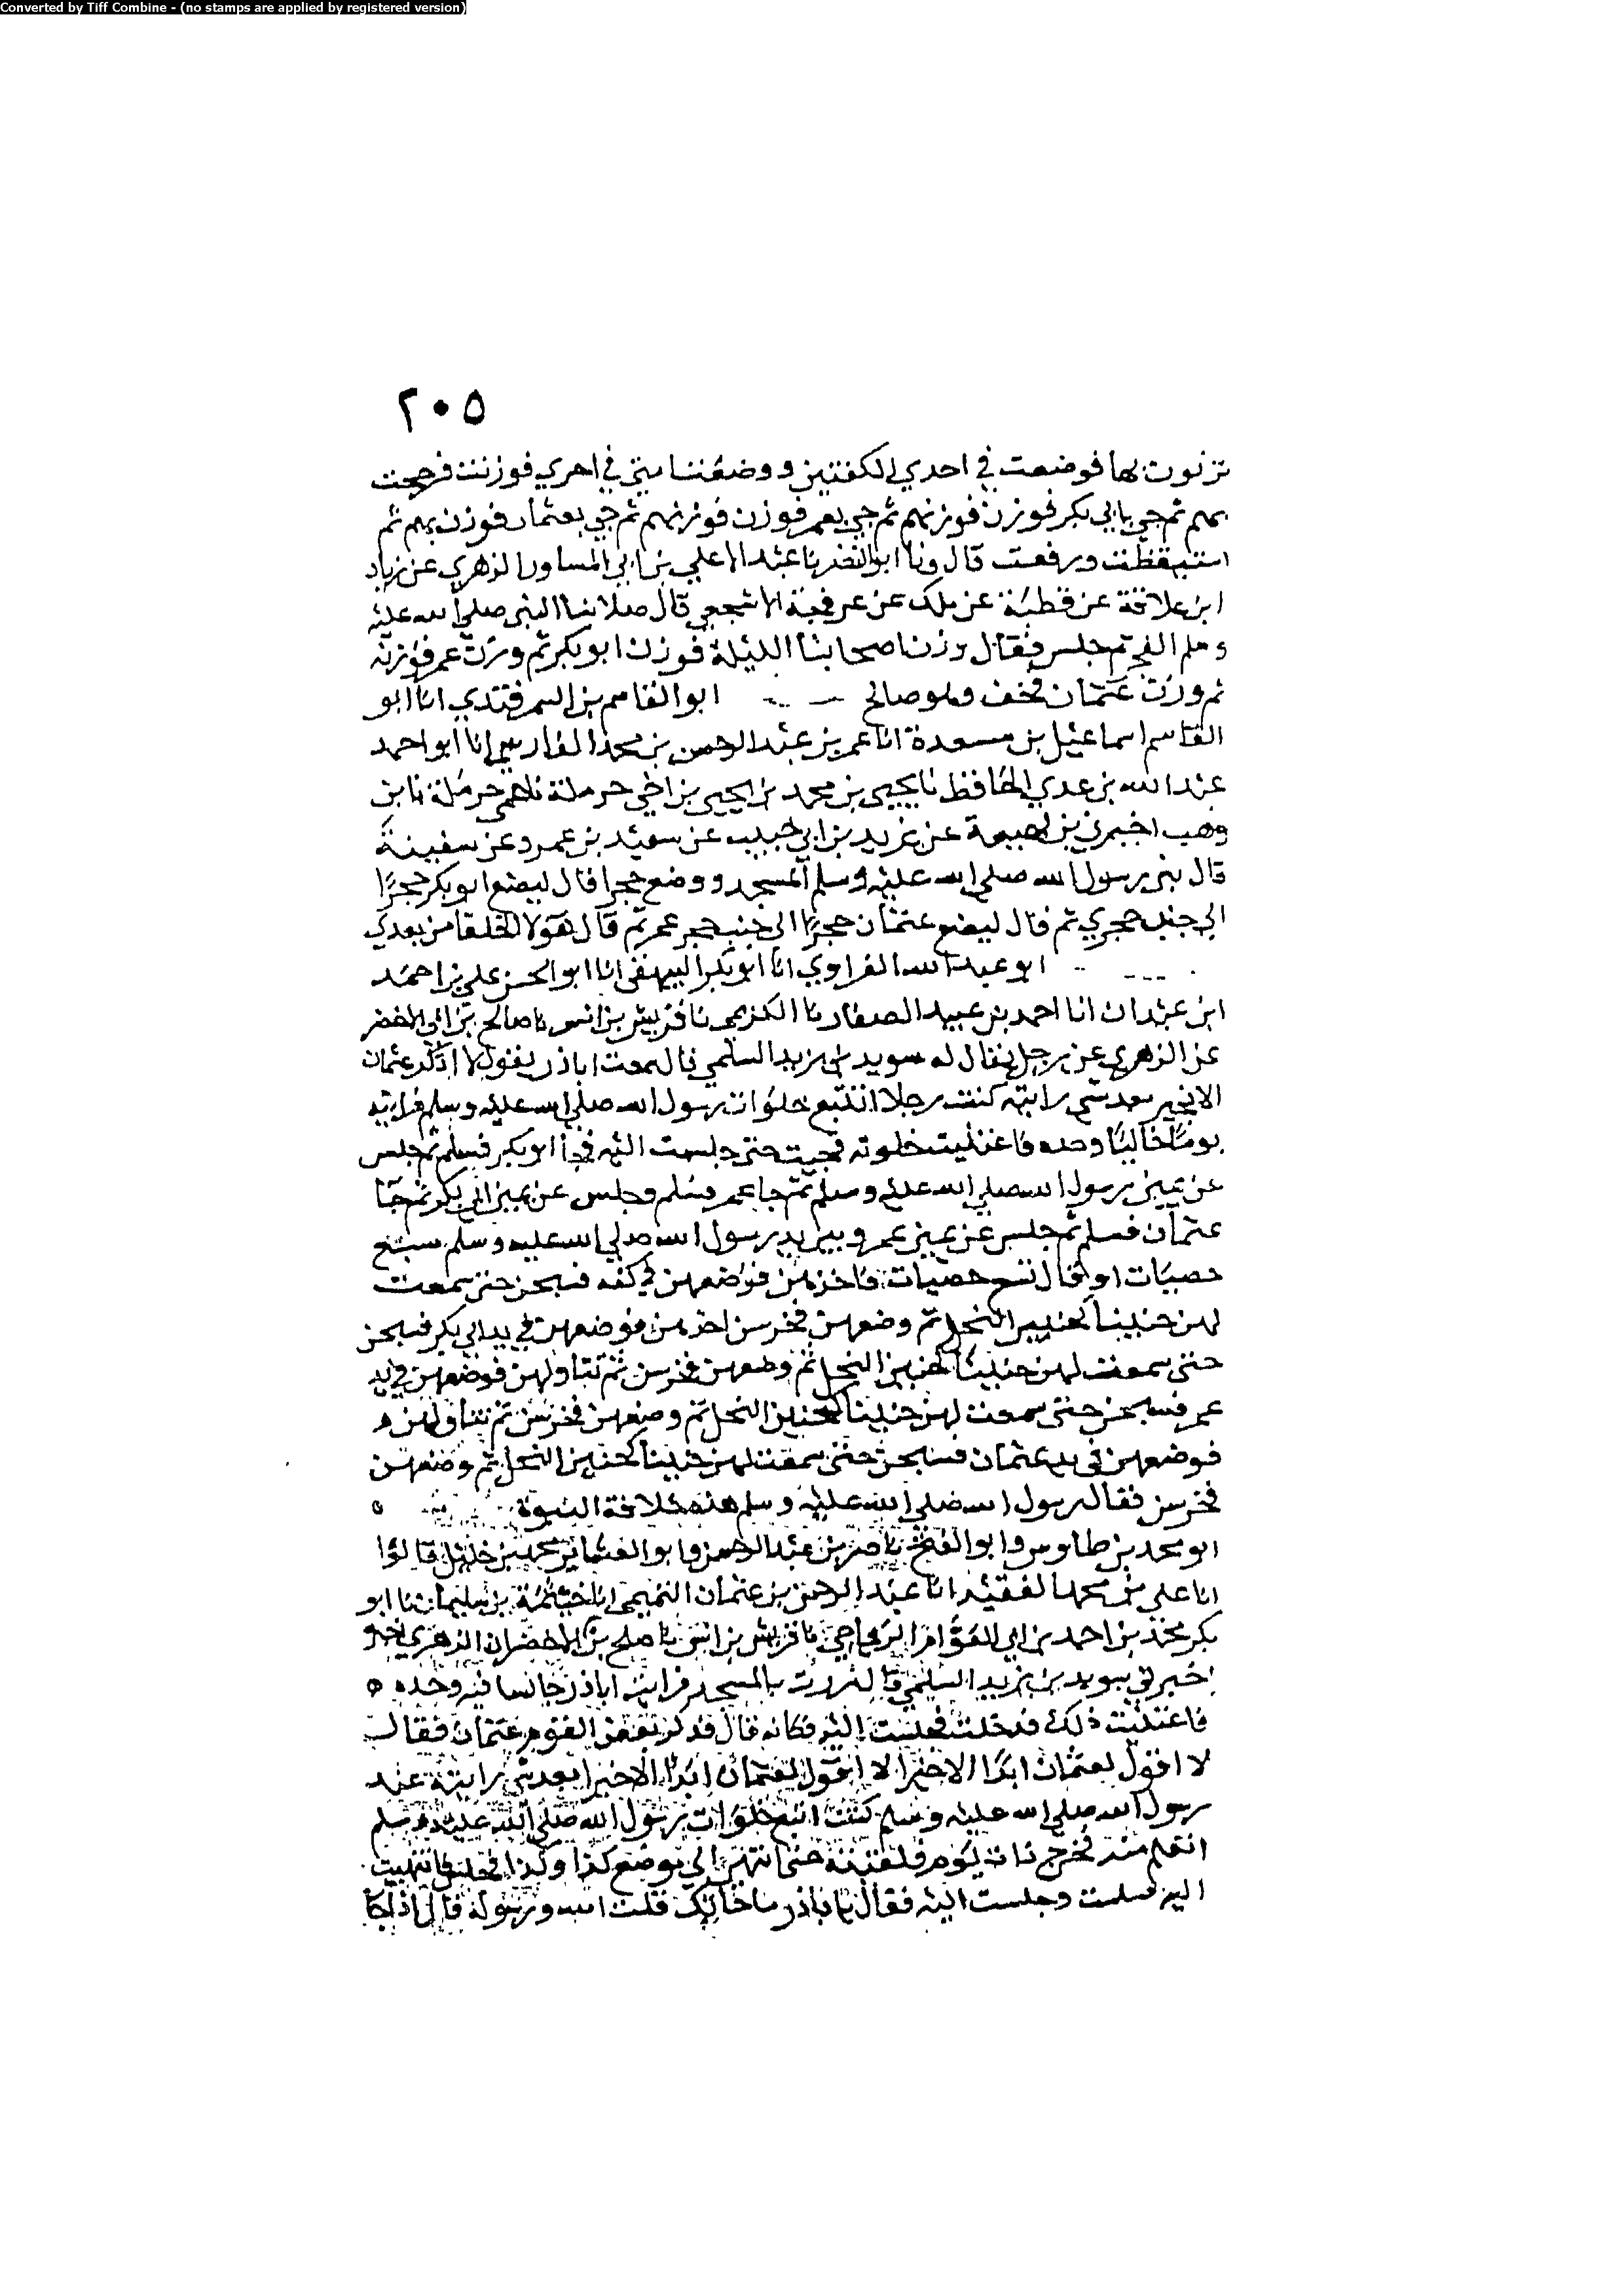 Converted by Tiff Combine - (no stamps are applied by registered version)
٢٠٥
تزنون بها فوضعت في احدي الكفتين ووضعت امتي في اخري فوزنت فرجحت
بهم ثم جي بابي بكر فوزن فوزنهم ثم جي بعمر فوزن فوزنهم ثم جي بعثمان فوزن بهم ثم
استيقظت ورفعت قال ونا ابو النضر نا عبد الاعلي بن ابي المساور الزهري عن زياد
ابن علاقة عن قطبة عن ملك عن عرفجة الاشجعي قال صلا بنا النبي صلي الله عليه
وسلم الفجر ثم جلس فقال وزن اصحابنا الليلة فوزن ابو بكر ثم وزن عمر فوزن
ثم وزن عثمان فخف وهو صالح ابو القاسم بن السمرقندي انا ابو
القاسم اسماعيل بن مسعدة انا عمر بن عبد الرحمن بن محمد الفارسي انا ابو احمد
عبد الله بن عدي الحافظ نا يحيي بن محمد بن يحيي بن اخي حرملة نا عمي حرملة نا بن
وهب اخبرني بن لهيعة عن يزيد بن ابي حبيب عن سويد بن عمرو عن سفينة
قال بني رسول الله صلي الله عليه وسلم المسجد ووضع حجرا قال ليضع ابو بكر حجرًا
الي جنب حجري ثم قال ليضع عثمان حجرًا الي جنب حجر عمر ثم قال هؤلا الخلفا من بعدي
ابو عبد الله الفراوي انا ابو بكر البيهقي انا ابو الحسن علي بن احمد
ابن عبدان انا احمد بن عبيد الصفار نا الكديمي نا قريش بن انس نا صالح بن ابي الاخضر
عن الزهري عن رجل يقال له سويد بن يزيد السلمي قال سمعت اباذر يقول لا اذكر عثمان
الا بخير بعد شي رايته كنت رجلا اتتبع خلوات رسول الله صلي الله عليه وسلم فرايته
يومًا خاليًا وحده فاغتنمت خلوته فجيت حتي جلست اليه فجا ابو بكر فسلم ثم جلس
عن يمين رسول الله صلي الله عليه وسلم ثم جا عمر فسلم وجلس عن يمين ابي بكر ثم جا
عثمان فسلم ثم جلس عن يمين عمر وبين يدي رسول الله صلي الله عليه وسلم سبع
حصيات او قال تسع حصيات فاخذهن فوضعهن في كفه فسبحن حتي سمعت
لهن حنينًا كحنين النحل ثم وضعهن فخرسن اخذهن فوضعهن في يد ابي بكر فسبحن
حتي سمعت لهن حنينًا كحنين النحل ثم وضعهن فخرسن ثم تناولهن فوضعهن في يد
عمر فسبحن حتي سمعت لهن حنينا كحنين النحل ثم وضعهن فخرسن ثم تناولهن
فوضعهن في يد عثمان فسبحن حتي سمعت لهن حنينا كحنين النحل ثم وضعهن
فخرسن فقال رسول الله صلي الله عليه وسلم هذه خلافة النبوة
ابو محمد بن طاوس وابو الفتح ناصر بن عبد الرحمن وابو العشاير محمد بن خليل قالوا
انا علي بن محمد الفقيه انا عبد الرحمن بن عثمان التميمي انا خيثمة بن سليمان نا ابو
بكر محمد بن احمد بن ابي العوام الرياحي نا قريش بن انس نا صالح بن الاخضر ان الزهري
اخبرني سويد بن يزيد السلمي قال مررت بالمسجد فرايت اباذر جالسا فيه وحده
فاغتنمت ذلك فدخلت فجلست اليه فكانه قال فذكر بعض القوم عثمان فقال
لا اقول لعثمان ابدًا الا خيرا لا اقول لعثمان ابدًا الا خيرا بعد شي رايته عند
رسول الله صلي الله عليه وسلم كنت اتبع خلوات رسول الله صلي الله عليه وسلم
اتعلم منه فخرج ذات يوم فلقيته حتي انتهي الي موضع كذا وكذا فجلس فانتهيت
اليه فسلمت وجلست اليه فقال يا باذر ما جا بك قلت الله ورسوله قال اذ جا